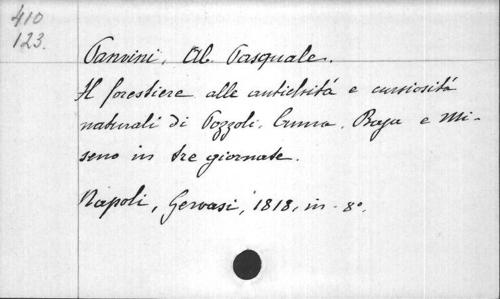 410
123.
Panvini, Ab. Pasquale.
Il forestiere alle antichità e curiosità
naturali di Pozzoli, Cuma, Baja e Mi-
seno in tre giornate.
Napoli, Gervasi, 1818, in - 8º.